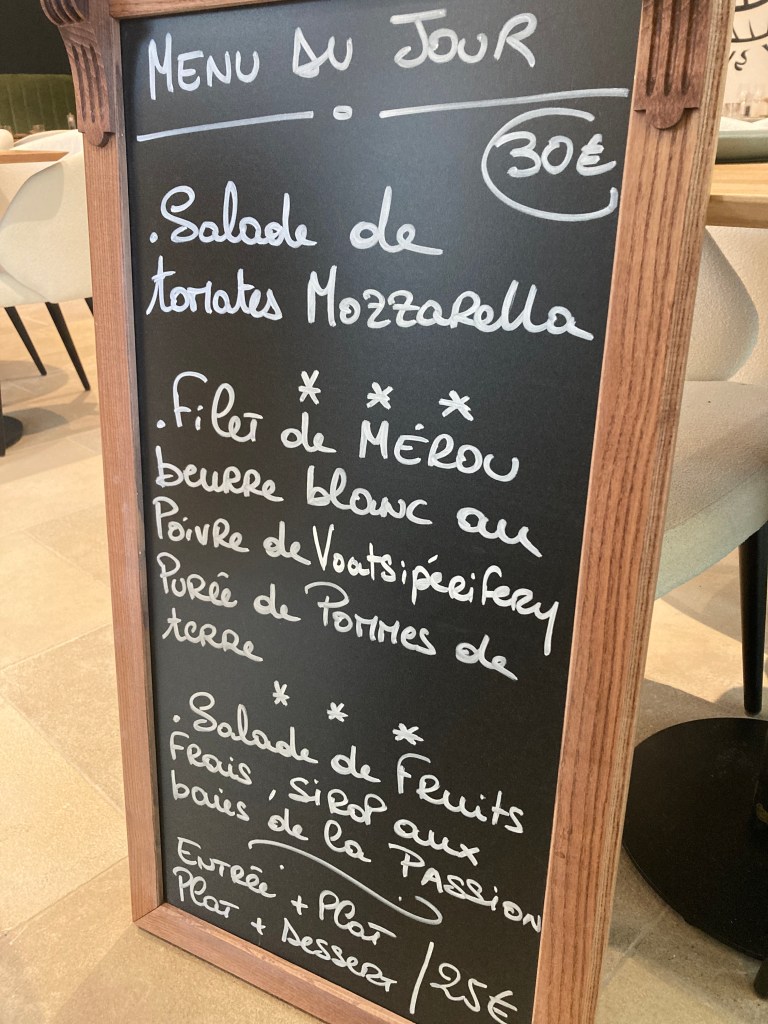 MENU DU JOUR
30€
. Salade de
tomates Mozzarella
* * *
. Filet de MÉROU
beurre blanc au
Poivre de Voatsipérifery
Purée de Pommes de
terre
* * *
. Salade de Fruits
Frais, sirop aux
baies de la PASSION
ENTRÉE + Plat
Plat + Dessert / 25€